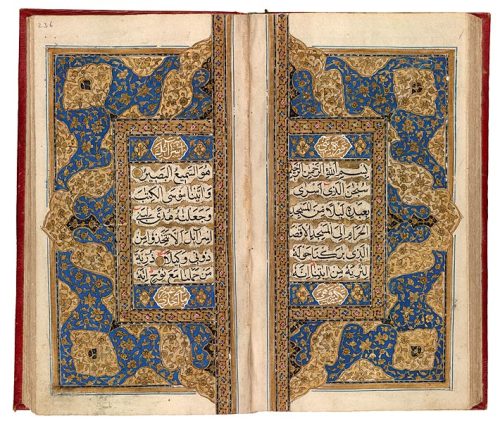 236
بسم الله الرحمن الرحيم
سبحن الذى اسرى
بعبده ليلا من المسجد
الحرام الى المسجد الاقصا
الذى بركنا حوله
لنريه من ايتنا انه
اسرائيل
هو السميع البصير
واتينا موسى الكتب
وجعلنه هدى لبنى
اسرائيل الا تتخذوا من
دونى وكيلا ذرية
من حملنا مع نوح انه